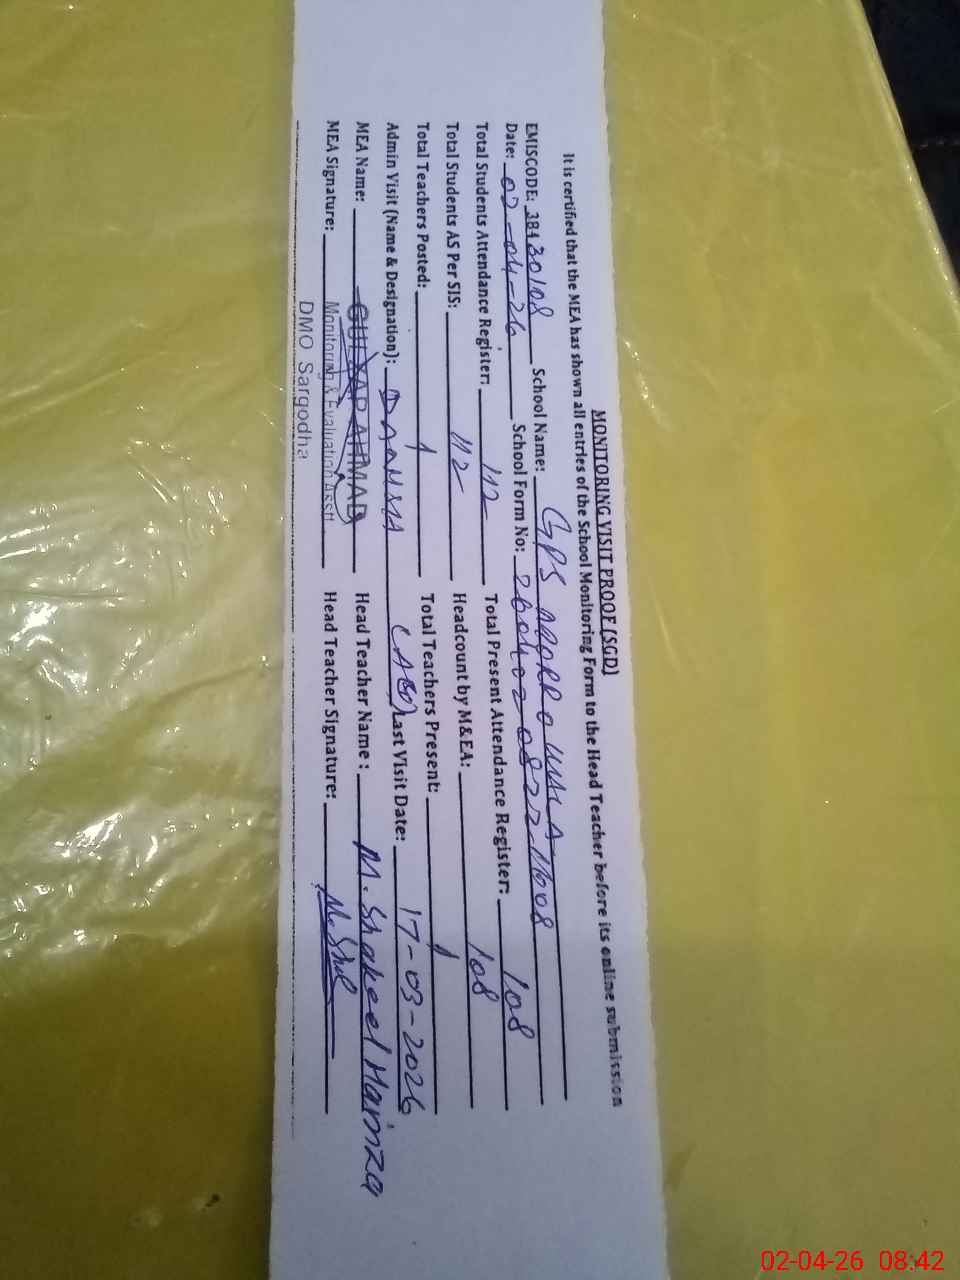 MONITORING VISIT PROOF (SGD)
It is certified that the MEA has shown all entries of the School Monitoring Form to the Head Teacher before its online submission
EMISCODE: 38430108 School Name: GPS
Date: 02-04-26 School Form No:
Total Students Attendance Register: 112 Total Present Attendance Register: 108
Total Students AS Per SIS: 112 Headcount by M&EA: 108
Total Teachers Posted: 1 Total Teachers Present: 1
Admin Visit (Name & Designation): Last Visit Date: 17-03-2026
MEA Name: GULZAR AHMAD Head Teacher Name : M. Shakeel Hamza
MEA Signature: Monitoring & Evaluation Asstt Head Teacher Signature:
DMO Sargodha
02-04-26 08:42